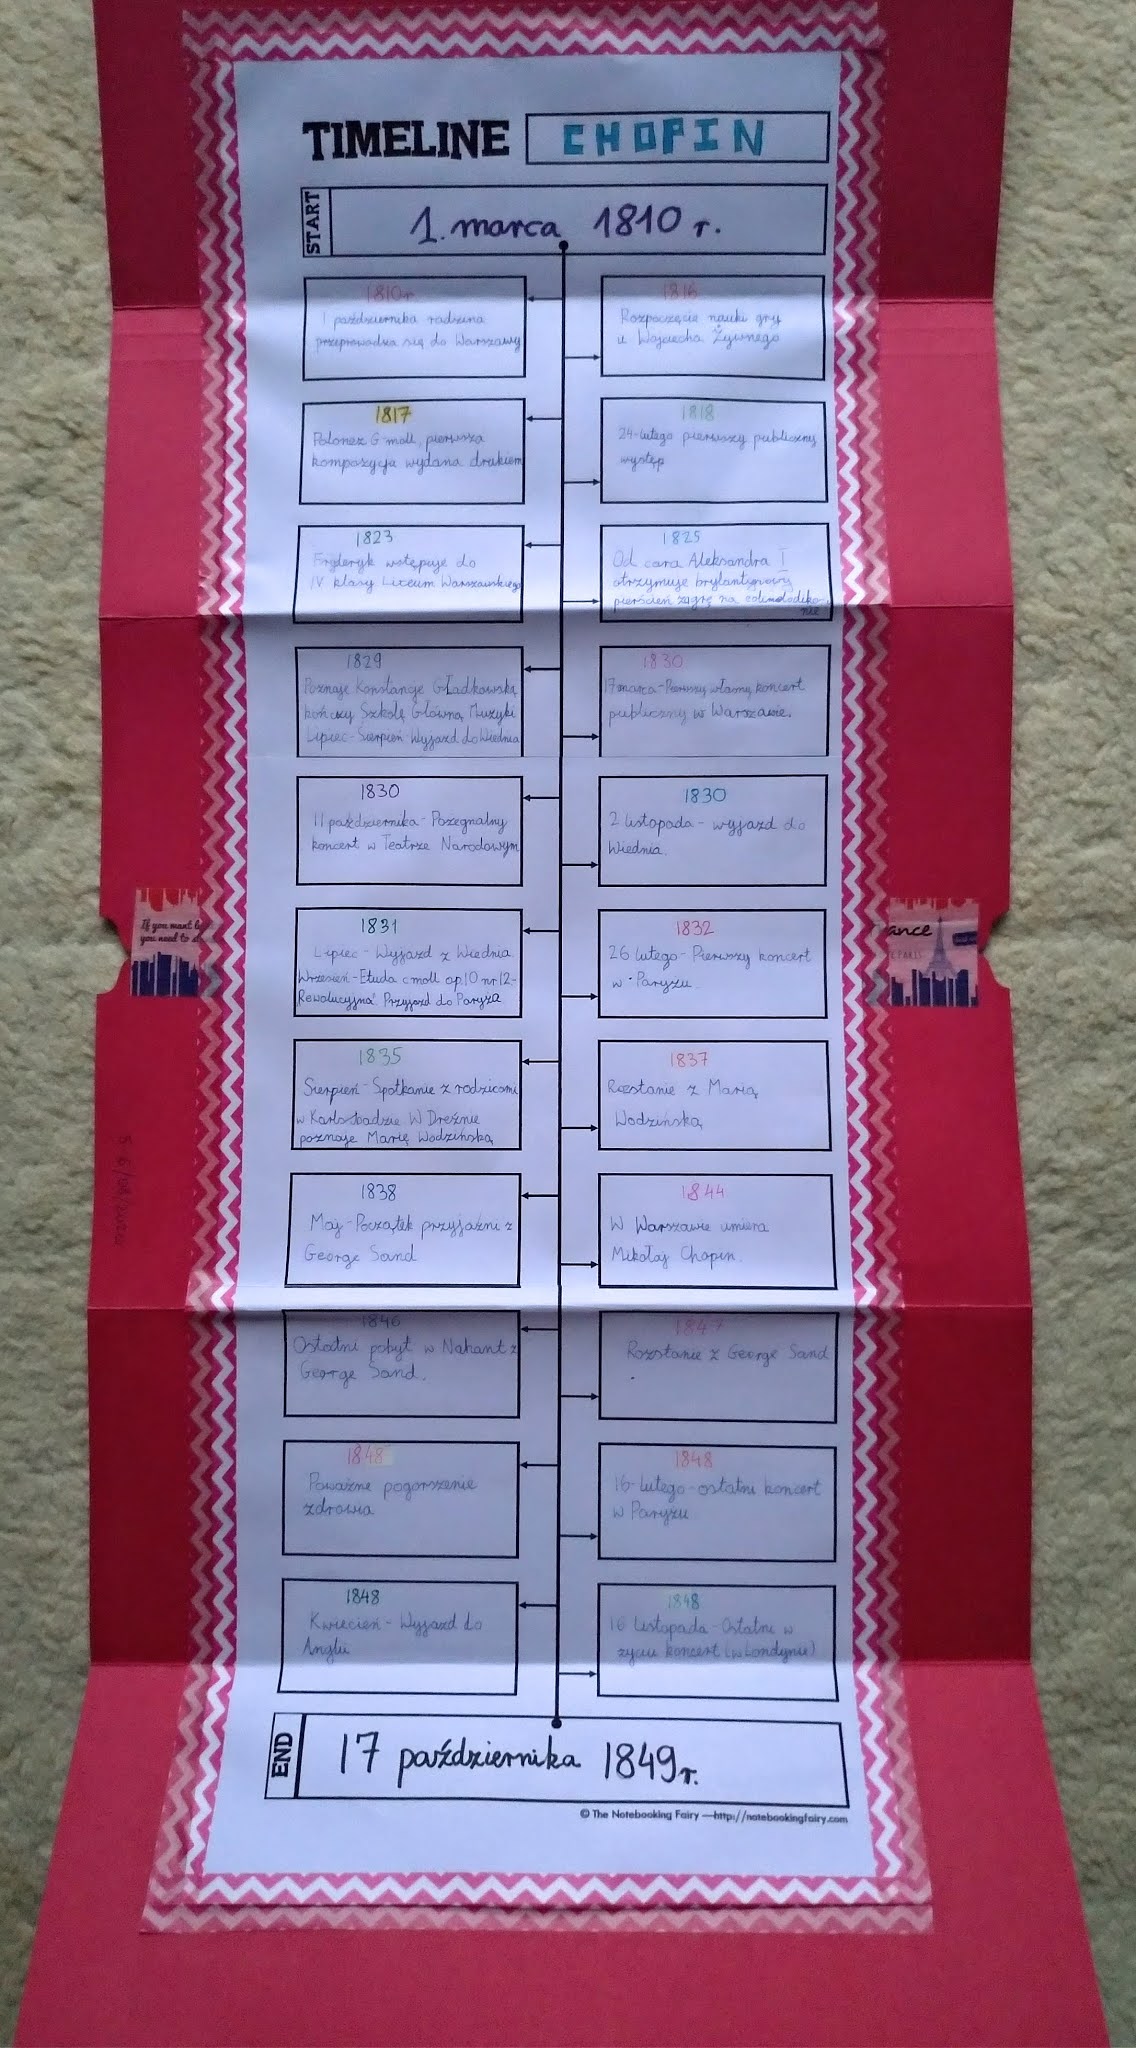 TIMELINE CHOPIN
START
1. marca 1810 r.
1810r
1 października rodzina
przeprowadza się do Warszawy
1816
Rozpoczęcie nauki gry
u Wojciecha Żywnego
1817
Polonez G-moll, pierwsza
kompozycja wydana drukiem
1818
24-lutego pierwszy publiczny
występ
1823
Fryderyk wstępuje do
IV klasy Liceum Warszawskiego
1825
Od cara Aleksandra I
otrzymuje brylantynowy
pierścień na
nie
1829
Poznaje Konstancję Gładkowską
kończy Szkołę Główną Muzyki
Lipiec-Sierpień Wyjazd do Wiednia
1830
17 marca-Pierwszy własny koncert
publiczny w Warszawie.
1830
11 października-Pożegnalny
koncert w Teatrze Narodowym
1830
2 listopada - wyjazd do
Wiednia.
1831
Lipiec - Wyjazd z Wiednia
Wrzesień-Etiuda c moll op10 nr12-
Rewolucyjna Przyjazd do Paryża
1832
26 lutego-Pierwszy koncert
w Paryżu.
1835
Sierpień-Spotkanie z rodzicami
w Karlsbadzie W Dreźnie
poznaje Marię Wodzińską
1837
Rozstanie z Marią
Wodzińską
1838
Maj-Początek przyjaźni z
George Sand
1844
W Warszawie umiera
Mikołaj Chopin.
1846
Ostatni pobyt w Nahant z
George Sand.
1847
Rozstanie z George Sand
.
1848
Poważne pogorszenie
zdrowia
1848
16-lutego-ostatni koncert
w Paryżu
1848
Kwiecień-Wyjazd do
Anglii
1848
16 listopada-Ostatni w
życiu koncert (w Londynie)
END
17 października 1849r.
© The Notebooking Fairy —http://notebookingfairy.com
If you want
you need to
ance